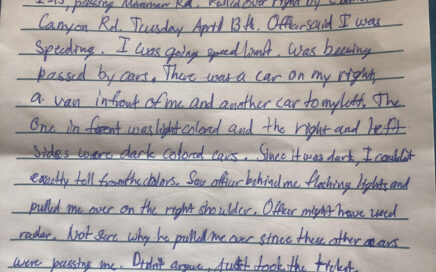 I-15 passing Miramar Rd. Pulled over right by
Canyon Rd. Tuesday April 13th. Officer said I was
Speeding. I was going speed limit. Was beeing
passed by cars. There was a car on my right,
a van infront of me and another car to my left. The
one in front was light colored and the right and left
sides were dark colored cars. Since it was dark, I couldnt
exactly tell from the colors. Saw officer behind me flashing lights and
pulled me over on the right shoulder. Officer might have used
radar. Not sure why he pulled me over since these other cars
were passing me. Didn't argue, Just took the ticket.